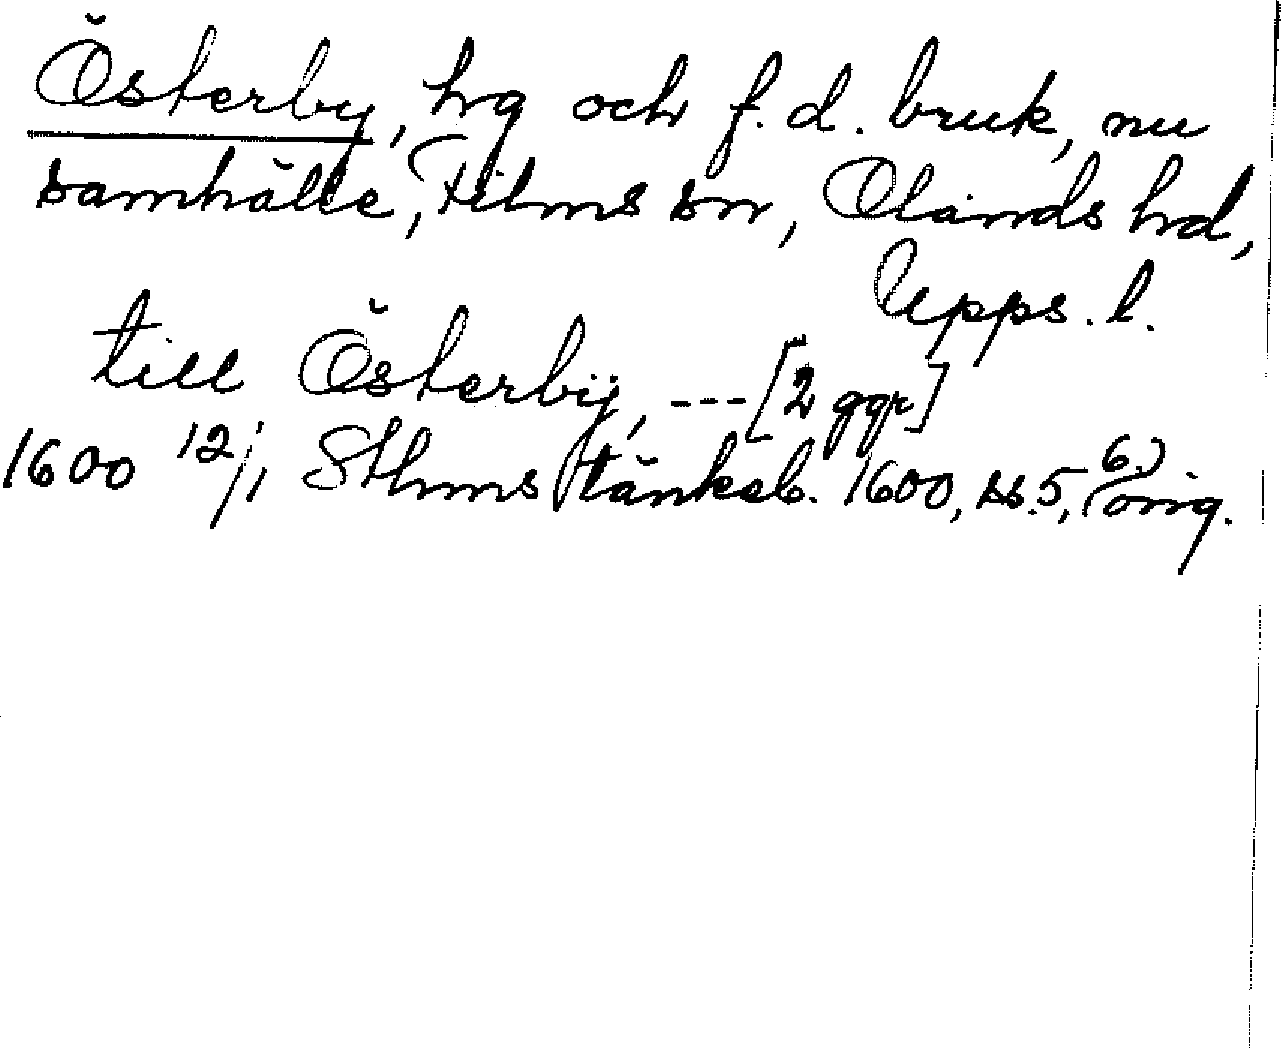 Österby, hg och f. d. bruk, nu
samhälle, Films sn, Olands hd,
Upps. l.
till Österbÿ, --- [2 ggr]
1600 12/1 Sthms tänkeb. 1600, ss. 5, 6) orig.